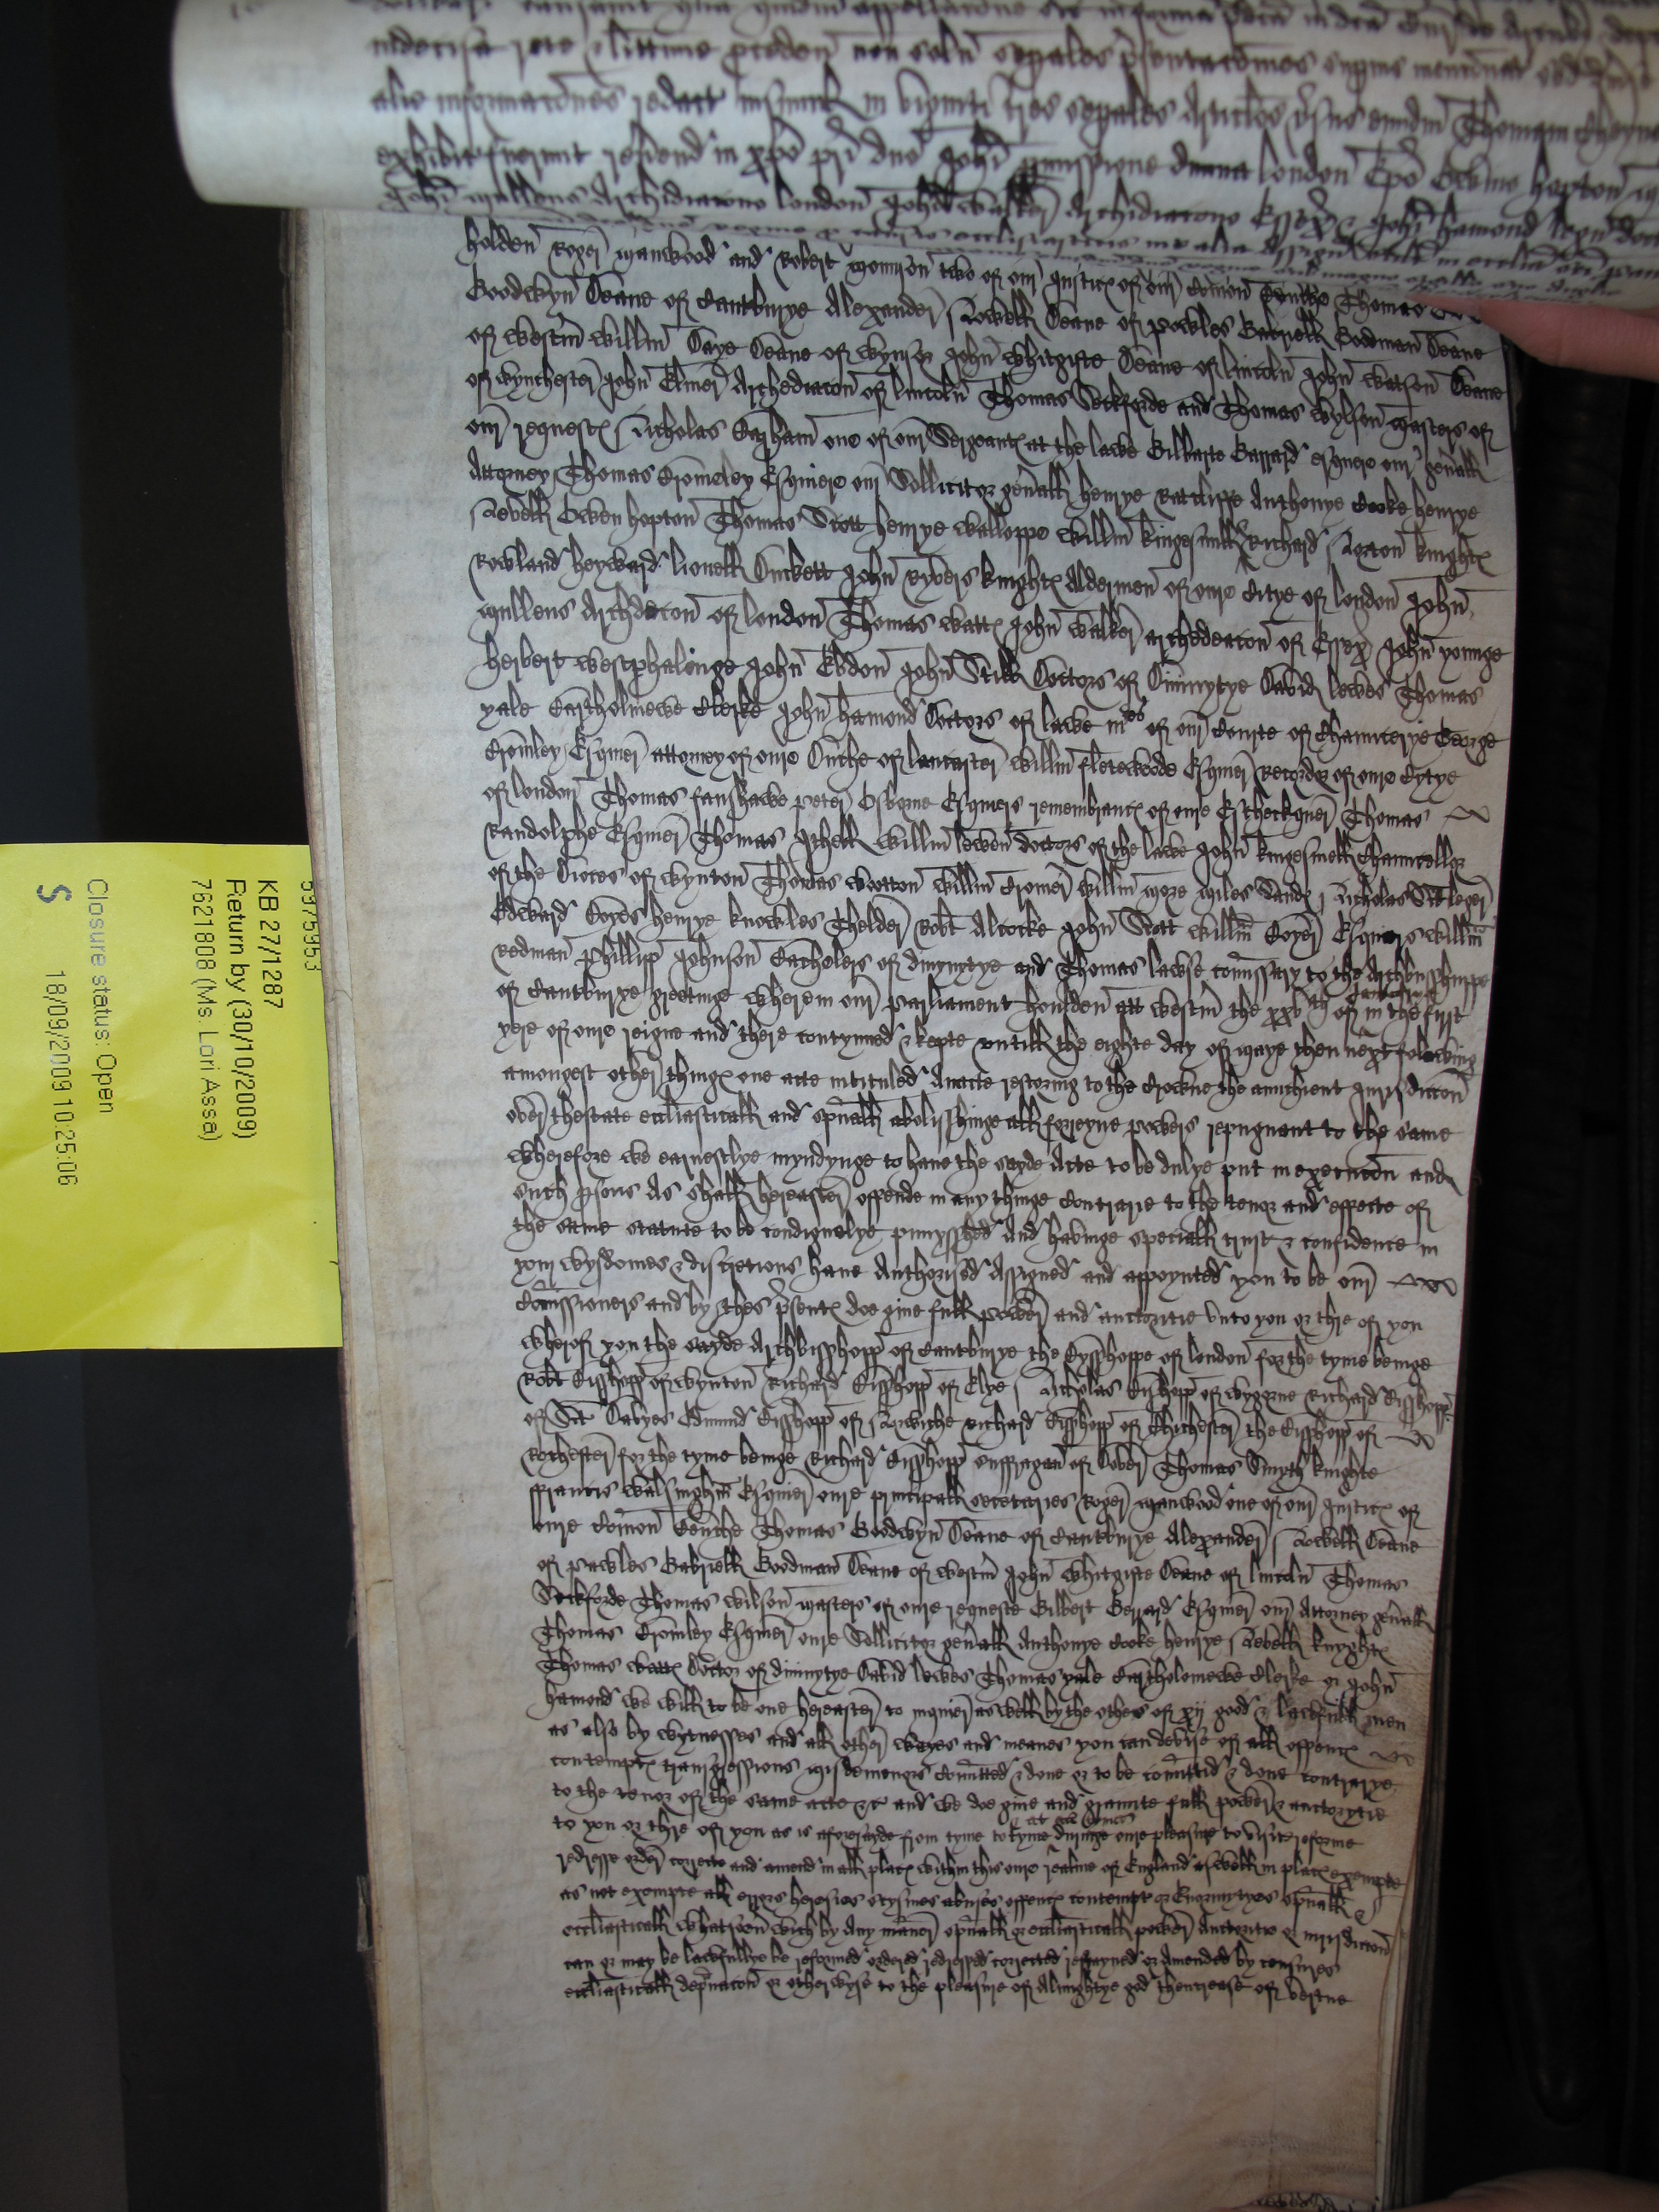 indecisa
alie informacones redact in
exhibit fuerunt london Owino hopton
Archidiacono london Archidiacono Essex hamond
holden Roger manwood and Robert monnson two of our Justices of our Comon Benche Thomas
Goodwyn Deane of Cantburye Alexander Nowell Deane of Powles Gabriell Goodman Deane
of westm willm Daye Deane of wynsor John whitgifte Deane of lincoln John watson Deane
of wynchester John Elmer Archediacon of lincoln Thomas Seckforde and Thomas wylson masters of
our requestes Nicholas Barham one of our Sergeantes at the lawe Gilbarte Garrard esquere our genall
Attorney Thomas Bromeley Esquiere our Sollicitor genall henrye Ratcliffe Anthonye Cooke henrye
Nevell Owen hopton Thomas Scott henrye walloppe willm kingesmill Richard Norton knightes
Rowland heyward lionell Duckett John Ryvers knightes Aldermen of oure Citye of london John
mullens Archdeacon of london Thomas wattes John walker archedeacon of Essex John younge
herbert westphalinge John Ebdon John Still Doctors of Divinytye David lewes Thomas
yale Bartholmewe Clerke John hamond Doctors of lawe mres of our Courte of Chauncerye George
Bromley Esquier attorney of oure Duche of lancaster willm fletewoode Esquier Recorder of oure Cytye
of london Thomas fanshawe peter Osborne Esquiers remembrances of oure Eschecquer Thomas
Randolphe Esquier Thomas Ithell willm lewen doctors of the lawe John kingesmell Chauncellor
of the Dioces of wynton Thomas wootton willm Cromer willm more miles Sandes Nicholas Sct leger
Edward Boyes henrye knowles Thelder Robt Alcocke John Scott willm Boyer Esquiers willm
Redman Phillipp Johnson Bachelers of divynytye and Thomas lawse comissary to the Archbusshuppe
of Cantburye greetinge wherein our parliament houlden att westm the xxvth of Januarye in the first
yere of oure reigne and there contynued & kepte untill the eighte day of maye then next folowing
amongest other thinges one acte intituled Anacte restoring to the Crowne the aunchient Jurisdiccon
over thestate ecclasticall and spuall abolisshinge all foreyne powers repugnant to the same
wherefore we earnestlye myndynge to have the sayde Acte to be dulye put in execucon and
such psons As shall hereafter offende in any thinge Contrarie to the tenor and effecte of
the same statute to be condignelye punysshed And havinge speciall trust & confidence in
your wysdomes & discretions have Authorised Assigned and appoynted you to be our
Comissioners and by thes psentes doe give full power and auctoritie unto you or thre of you
wherof you the sayde Archbisshopp of Cantburye the Bysshoppe of london for the tyme beinge
Robt Bisshopp of wynton Richard Bisshopp of Elye Nicholas Bishopp of wygorne Richard Bisshopp
of Sct Davyes Edmund Bisshopp of Norwiche Richard Bisshopp of Chichester the Bisshopp of
Rochester for the tyme beinge Richard Bisshopp suffragan of Dover Thomas Smyth knighte
ffrancis walsinghm Esquier oure principall secretaries Roger manwood one of our Justices of
oure Comon Benche Thomas Goodwyn Deane of Cantburye Alexander Nowell Deane
of pawles Gabriell Goodman Deane of westm John whitgifte Deane of lincoln Thomas
Seckforde Thomas wilson masters of oure requeste Gilbert Gerrard Esquier our Attorney genall
Thomas Bromley Esquier oure Sollicitor genall Anthonye Cooke henrye Nevell knyghtes
Thomas wattes Doctor of divinytye David lewes Thomas yale Bartholomewe Clerke or John
hamond we will to be one hereafter to inquier as well by the othes of xij good & lawfull men
as also by wytnesses and all other wayes and meanes you can devise of all offences
contemptes transgressions misdemenors comitted & done or to be comittid & done contrarye
to the tenor of the same acte &c and we doe give and graunte full power & auctorytie
to you or thre of you as is aforesayde from tyme to tyme at all times duringe oure pleasure to visite reforme
redresse order correcte and amend in all places within this oure realme of England aswell in places exempte
as not exempte all errors heresies scysmes abuses offences contempt or Enormytyes spuall &
ecclasticall whatsoever wich by Any maner spuall or ecclasticall power Auctoritie or jurisdiccon
can or may be lawfullye be reformed ordered redressed corrected restrayned or Amended by censures
ecclasticall deprivacon or otherwyse to the pleasure of Almightye god thencrease of vertue
59759953
KB 27/1287
Return by (30/10/2009)
7621808 (Ms. Lori Assa)
Closure status: Open
18/09/2009 10:25:06
S